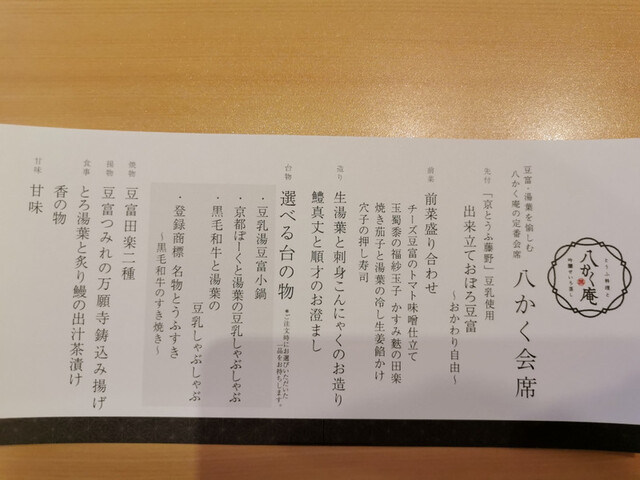 とうふ料理と
八かく庵
吟醸せいろ蒸し
豆富・湯葉を愉しむ
八かく庵の定番会席
八かく会席
先付
「京とうふ藤野」豆乳使用
出来立ておぼろ豆富
～おかわり自由～
前菜
前菜盛り合わせ
チーズ豆富のトマト味噌仕立て
玉蜀黍の福紗玉子 かすみ麩の田楽
焼き茄子と湯葉の冷し生姜餡かけ
穴子の押し寿司
造り
生湯葉と刺身こんにゃくのお造り
鱧真丈と順才のお澄まし
台物
選べる台の物
※ご注文時にお選びいただいた
一品をお持ちします。
・豆乳湯豆富小鍋
・京都ぽーくと湯葉の豆乳しゃぶしゃぶ
・黒毛和牛と湯葉の
豆乳しゃぶしゃぶ
・登録商標 名物とうふすき
～黒毛和牛のすき焼き～
焼物
豆富田楽二種
揚物
豆富つみれの万願寺鋳込み揚げ
食事
とろ湯葉と炙り鰻の出汁茶漬け
香の物
甘味
甘味